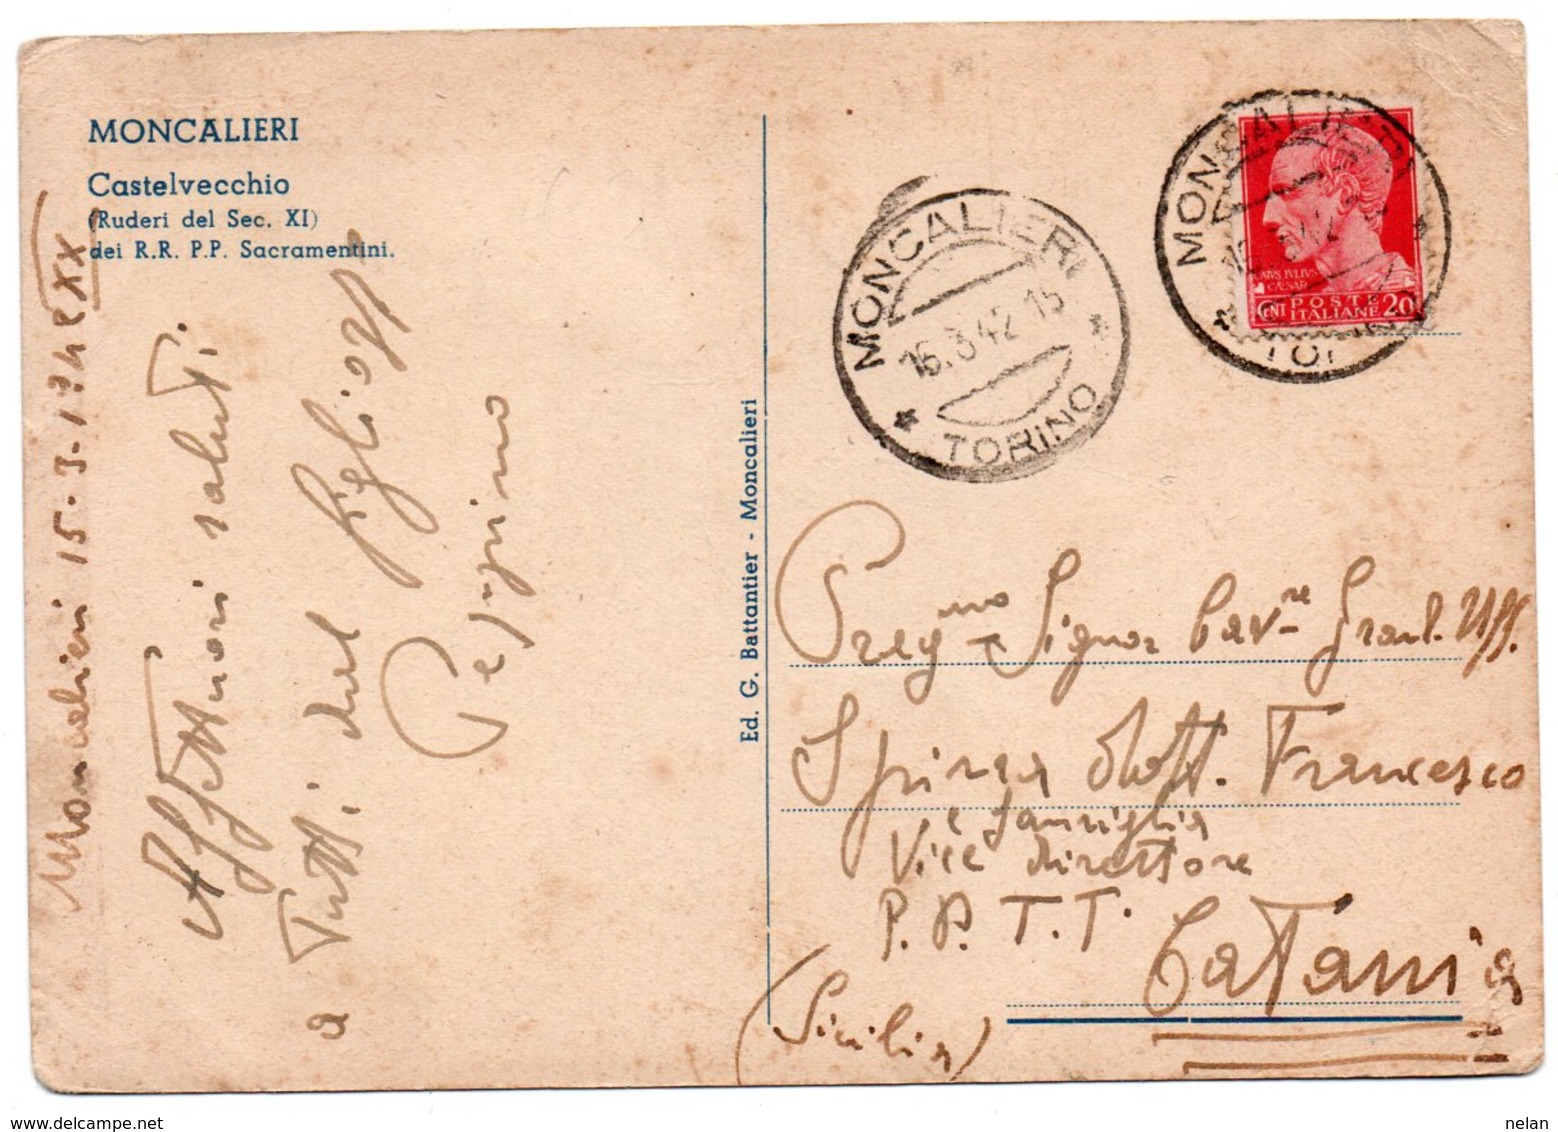 MONCALIERI
Castelvecchio
(Ruderi del Sec. XI)
dei R.R. P.P. Sacramentini.
Moncalieri 15.3.1942 XX
Affettuosi saluti
a tutti dal figliozzo
Peppino
Ed. G. Battantier - Moncalieri
MONCALIERI
16.3.42 15
TORINO
MONCALIERI
CAIVS IVLIVS
CAESAR
CENT POSTE 20
ITALIANE
Preg.mo Signor Cav.re Grand. Uff.
Spinza Dott. Francesco
e famiglia
Vice Direttore
P.P.T.T.
Catania
(Sicilia)
nelan
www.delcampe.net